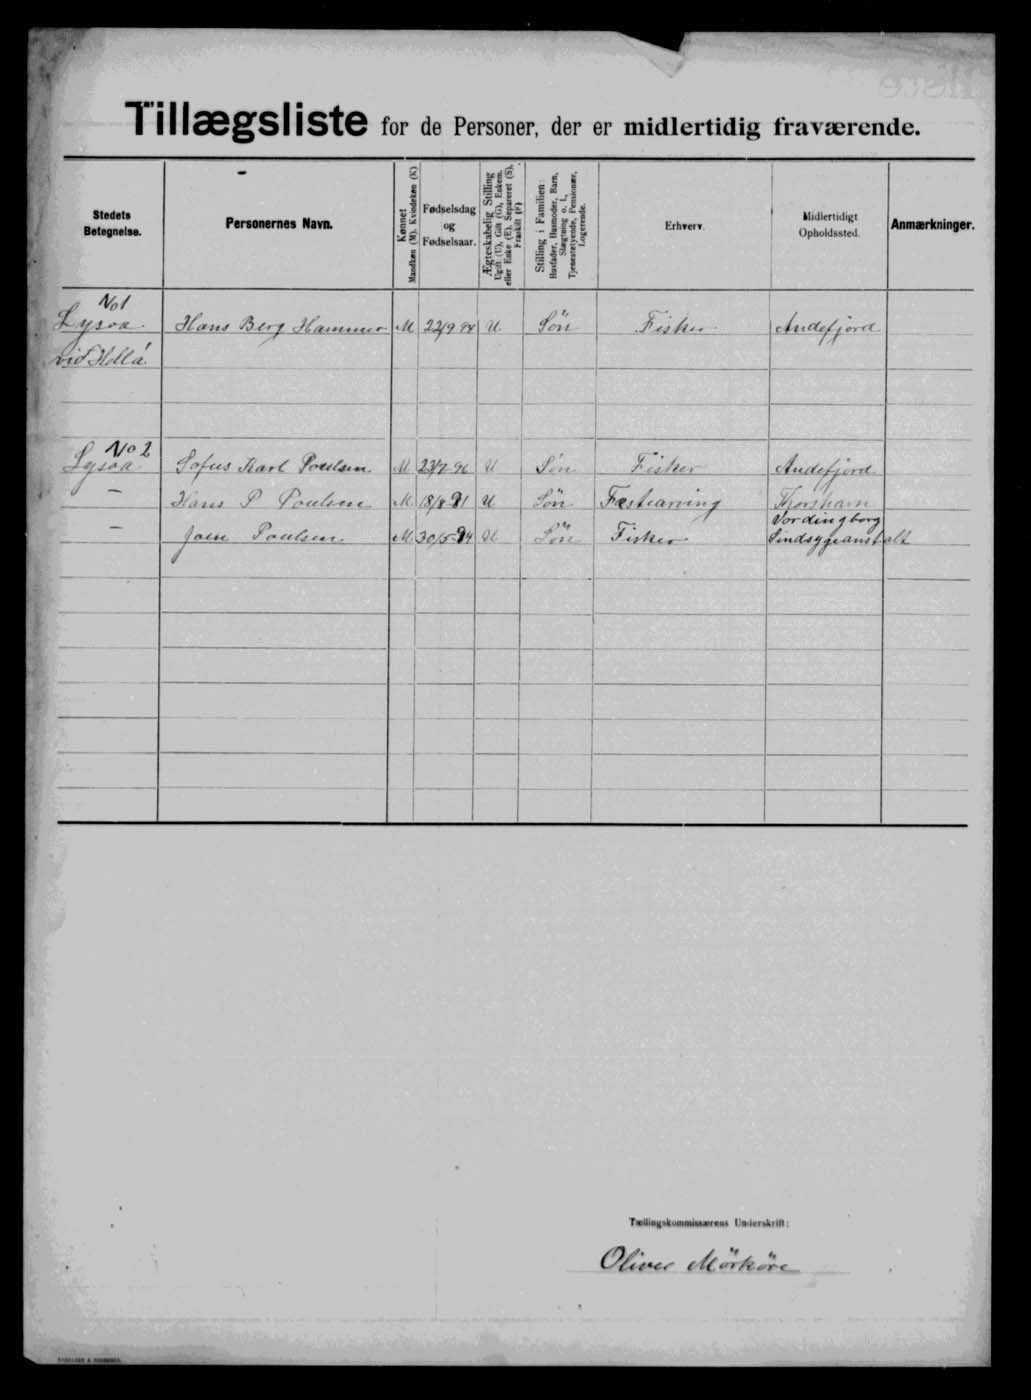 Tillægsliste for de Personer, der er midlertidig fraværende.
Stedets Betegnelse.
Personernes Navn.
Kønnet
Mandkøn (M). Kvindekøn (K)
Fødselsdag og Fødselsaar.
Ægteskabelig Stilling
Ugift (U), Gift (G), Enkem. eller Enke (E), Separeret (S), Fraskilt (F)
Stilling i Familien:
Husfader, Husmoder, Barn, Slægtning o. l., Tjenestetyende, Pensionær, Logerende.
Erhverv.
Midlertidigt Opholdssted.
Anmærkninger.
No 1
Lysoa Hans Berg Hammer M 22/9-94 U Søn Fisker Andefjord
vid
No 2
Lysoa Sofus Karl Poulsen M 23/7-96 U Sön Fisker Andefjord
— Hans P Poulsen M 18/8-81 U Søn Thorshavn
Vordingborg
— Poulsen M 30/5-94 U Sön Fisker Sindsygeanstalt
Tællingskommissærens Underskrift:
Oliver Mörköre